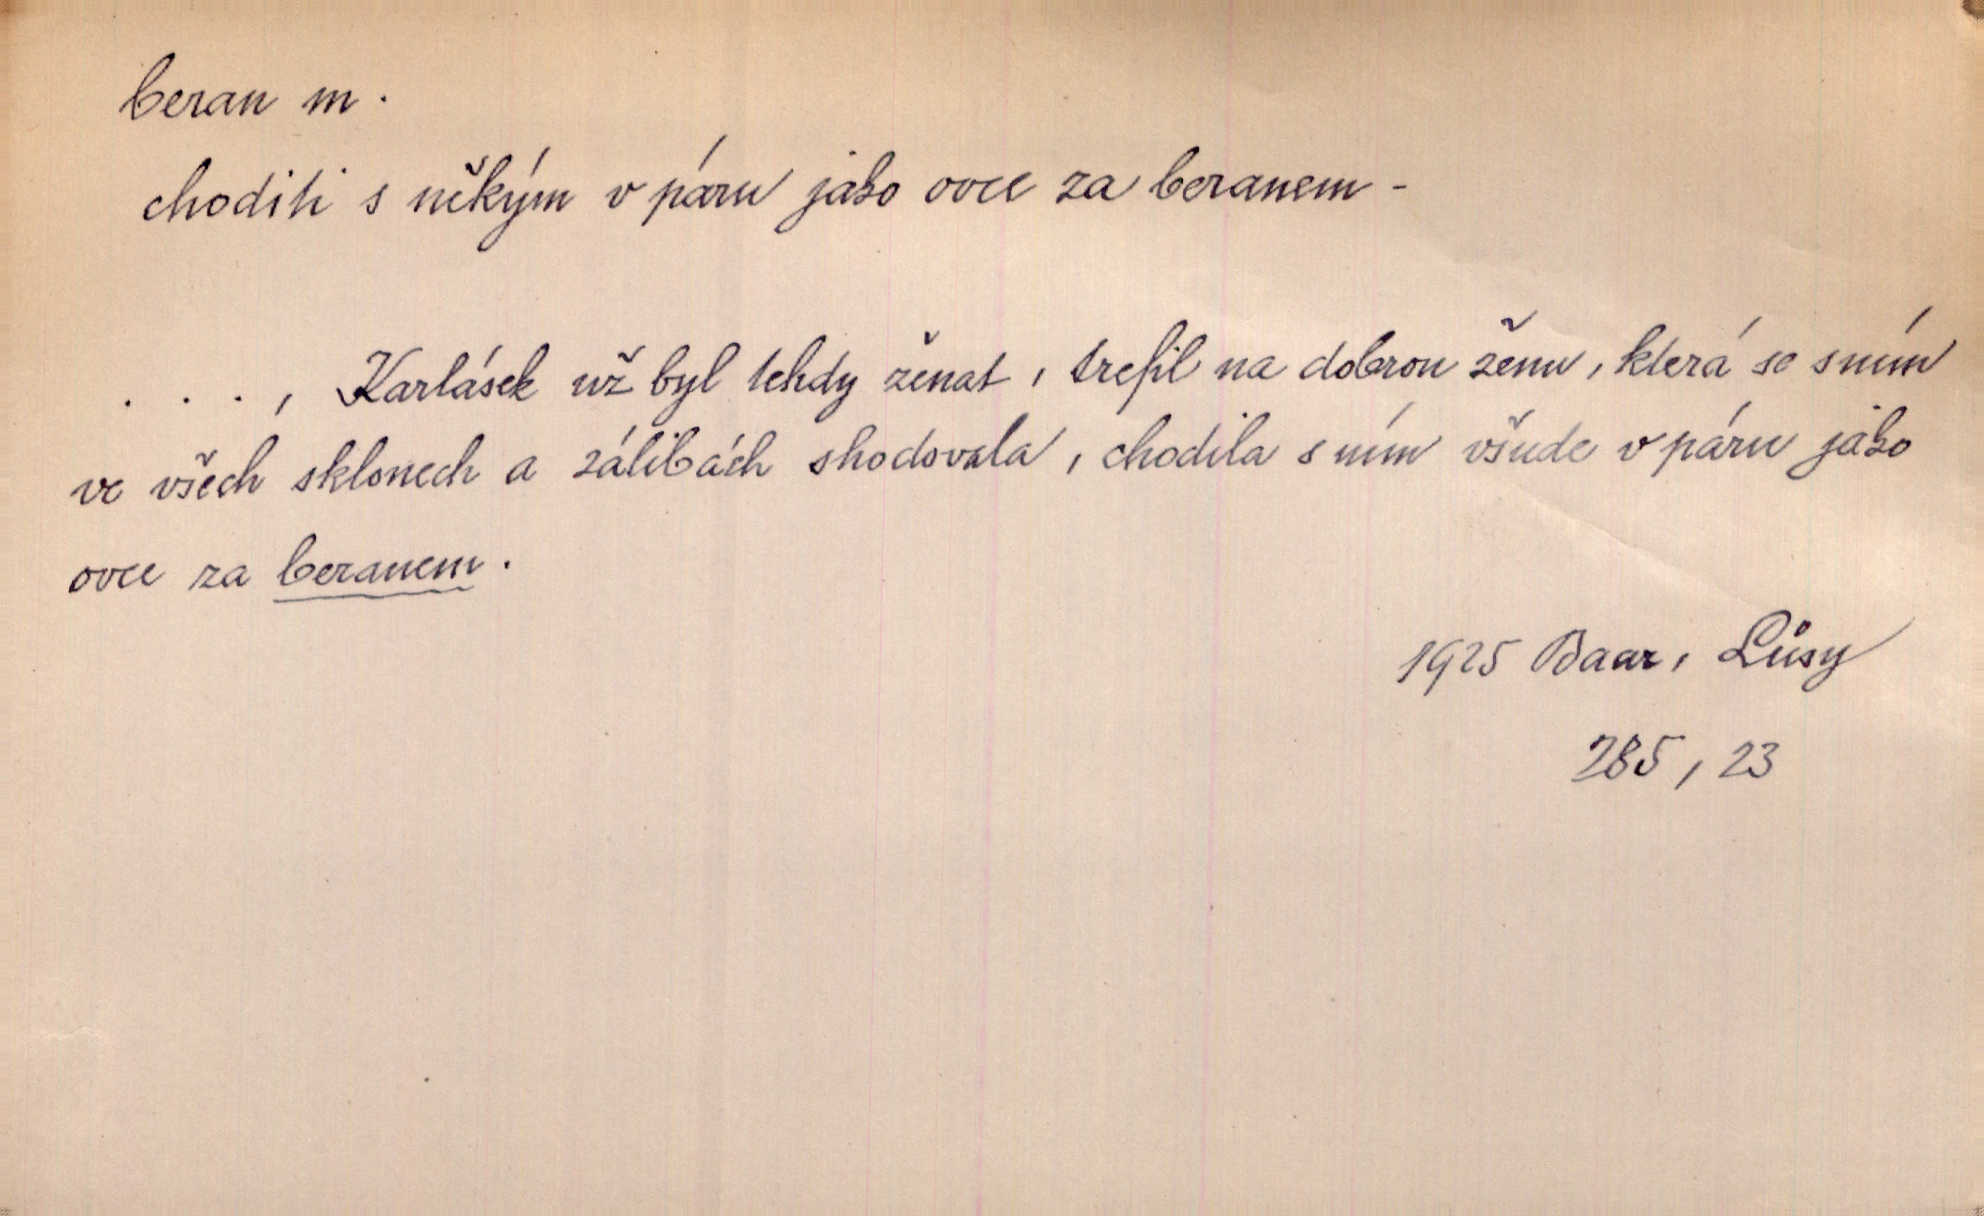 beran m.
choditi s někým v páru jako ovce za beranem -
. . . , Karlásek už byl tehdy ženat, trefil na dobrou ženu, která se s ním
ve všech sklonech a zálibách shodovala, chodila s ním všude v páru jako
ovce za beranem.
1925 Baar, Lůsy
285, 23